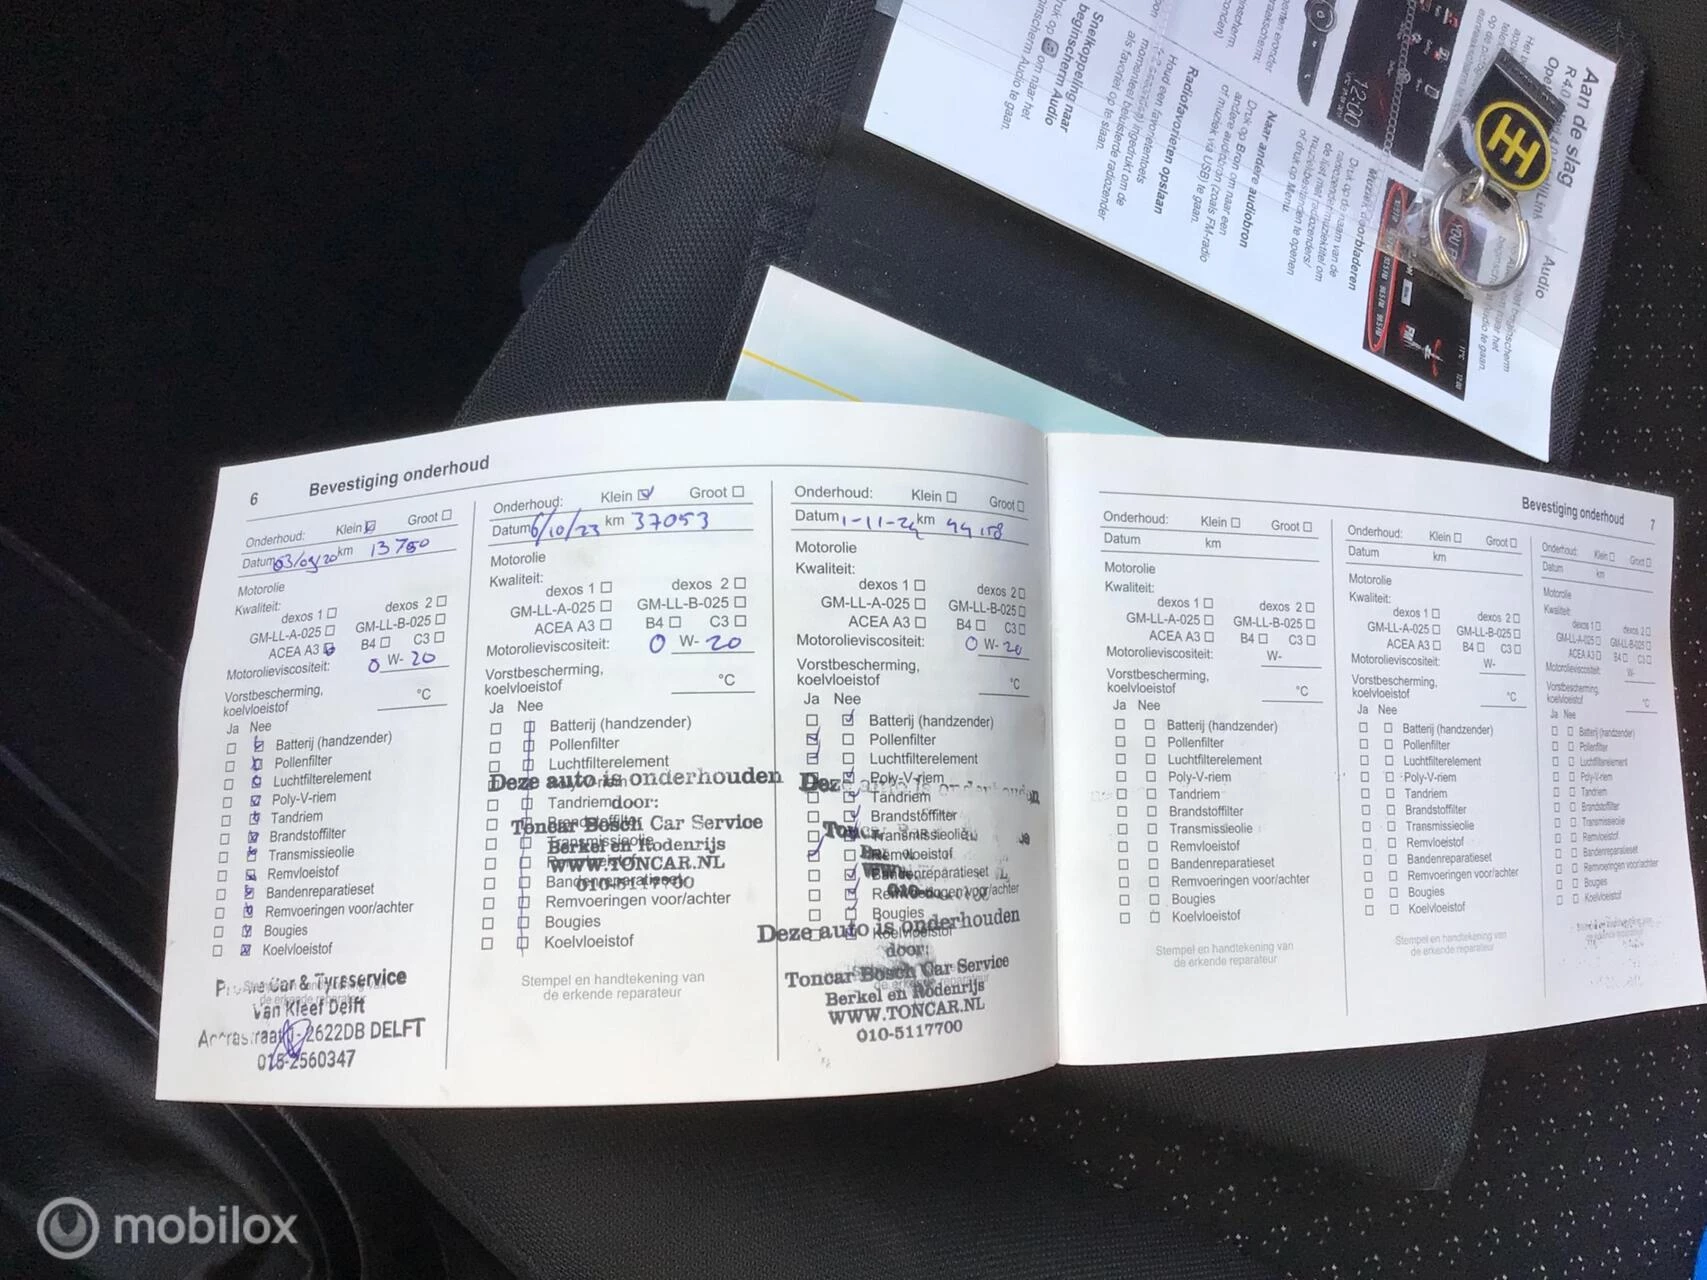 Aan de slag
Audio
Snelkoppeling naar
beginscherm Audio
om naar het
Radiofavorieten opslaan
Houd een favorietentoets
ingedrukt om de
momenteel beluisterde radiozender
als favoriet op te slaan.
Naar andere audiobron
Druk op Bron om naar een
andere audiobron (zoals FM-radio
of muziek via USB) te gaan.
Muziek doorbladeren
Druk op de naam van de
radiozender/muziektitel om
de lijst met radiozenders/
muziekbestanden te openen
of druk op Menu.
12:00
6
Bevestiging onderhoud
Onderhoud: Klein Groot
Datum 03/09/20 km 13750
Motorolie
Kwaliteit:
dexos 1 dexos 2
GM-LL-A-025 GM-LL-B-025
ACEA A3 B4 C3
Motorolieviscositeit: 0 W- 20
Vorstbescherming,
koelvloeistof °C
Ja Nee
Batterij (handzender)
Pollenfilter
Luchtfilterelement
Poly-V-riem
Tandriem
Brandstoffilter
Transmissieolie
Remvloeistof
Bandenreparatieset
Remvoeringen voor/achter
Bougies
Koelvloeistof
Car & Tyreservice
Van Kleef Delft
2622DB DELFT
015-2560347
Onderhoud: Klein Groot
Datum 6/10/23 km 37053
Motorolie
Kwaliteit:
dexos 1 dexos 2
GM-LL-A-025 GM-LL-B-025
ACEA A3 B4 C3
Motorolieviscositeit: 0 W- 20
Vorstbescherming,
koelvloeistof °C
Ja Nee
Batterij (handzender)
Pollenfilter
Luchtfilterelement
Deze auto is onderhouden
Tandriem door:
Toncar Bosch Car Service
Berkel en Rodenrijs
WWW.TONCAR.NL
010-5117700
Bandenreparatieset
Remvoeringen voor/achter
Bougies
Koelvloeistof
Stempel en handtekening van
de erkende reparateur
Onderhoud: Klein Groot
Datum 1-11-24 km 44158
Motorolie
Kwaliteit:
dexos 1 dexos 2
GM-LL-A-025 GM-LL-B-025
ACEA A3 B4 C3
Motorolieviscositeit: 0 W- 20
Vorstbescherming,
koelvloeistof °C
Ja Nee
Batterij (handzender)
Pollenfilter
Luchtfilterelement
Poly-V-riem
Tandriem
Brandstoffilter
Transmissieolie
Remvloeistof
Bandenreparatieset
Bougies
Koelvloeistof
Deze auto is onderhouden
door:
Toncar Bosch Car Service
Berkel en Rodenrijs
WWW.TONCAR.NL
010-5117700
Bevestiging onderhoud
7
Onderhoud: Klein Groot
Datum km
Motorolie
Kwaliteit:
dexos 1 dexos 2
GM-LL-A-025 GM-LL-B-025
ACEA A3 B4 C3
Motorolieviscositeit: W-
Vorstbescherming,
koelvloeistof °C
Ja Nee
Batterij (handzender)
Pollenfilter
Luchtfilterelement
Poly-V-riem
Tandriem
Brandstoffilter
Transmissieolie
Remvloeistof
Bandenreparatieset
Remvoeringen voor/achter
Bougies
Koelvloeistof
Stempel en handtekening van
de erkende reparateur
Onderhoud: Klein Groot
Datum km
Motorolie
Kwaliteit:
dexos 1 dexos 2
GM-LL-A-025 GM-LL-B-025
ACEA A3 B4 C3
Motorolieviscositeit: W-
Vorstbescherming,
koelvloeistof °C
Ja Nee
Batterij (handzender)
Pollenfilter
Luchtfilterelement
Poly-V-riem
Tandriem
Brandstoffilter
Transmissieolie
Remvloeistof
Bandenreparatieset
Remvoeringen voor/achter
Bougies
Koelvloeistof
Stempel en handtekening van
de erkende reparateur
Onderhoud: Klein Groot
Datum km
Motorolie
Kwaliteit:
dexos 1 dexos 2
GM-LL-A-025 GM-LL-B-025
ACEA A3 B4 C3
Motorolieviscositeit: W-
Vorstbescherming,
koelvloeistof °C
Ja Nee
Batterij (handzender)
Pollenfilter
Luchtfilterelement
Poly-V-riem
Tandriem
Brandstoffilter
Transmissieolie
Remvloeistof
Bandenreparatieset
Remvoeringen voor/achter
Bougies
Koelvloeistof
de erkende reparateur
mobilox